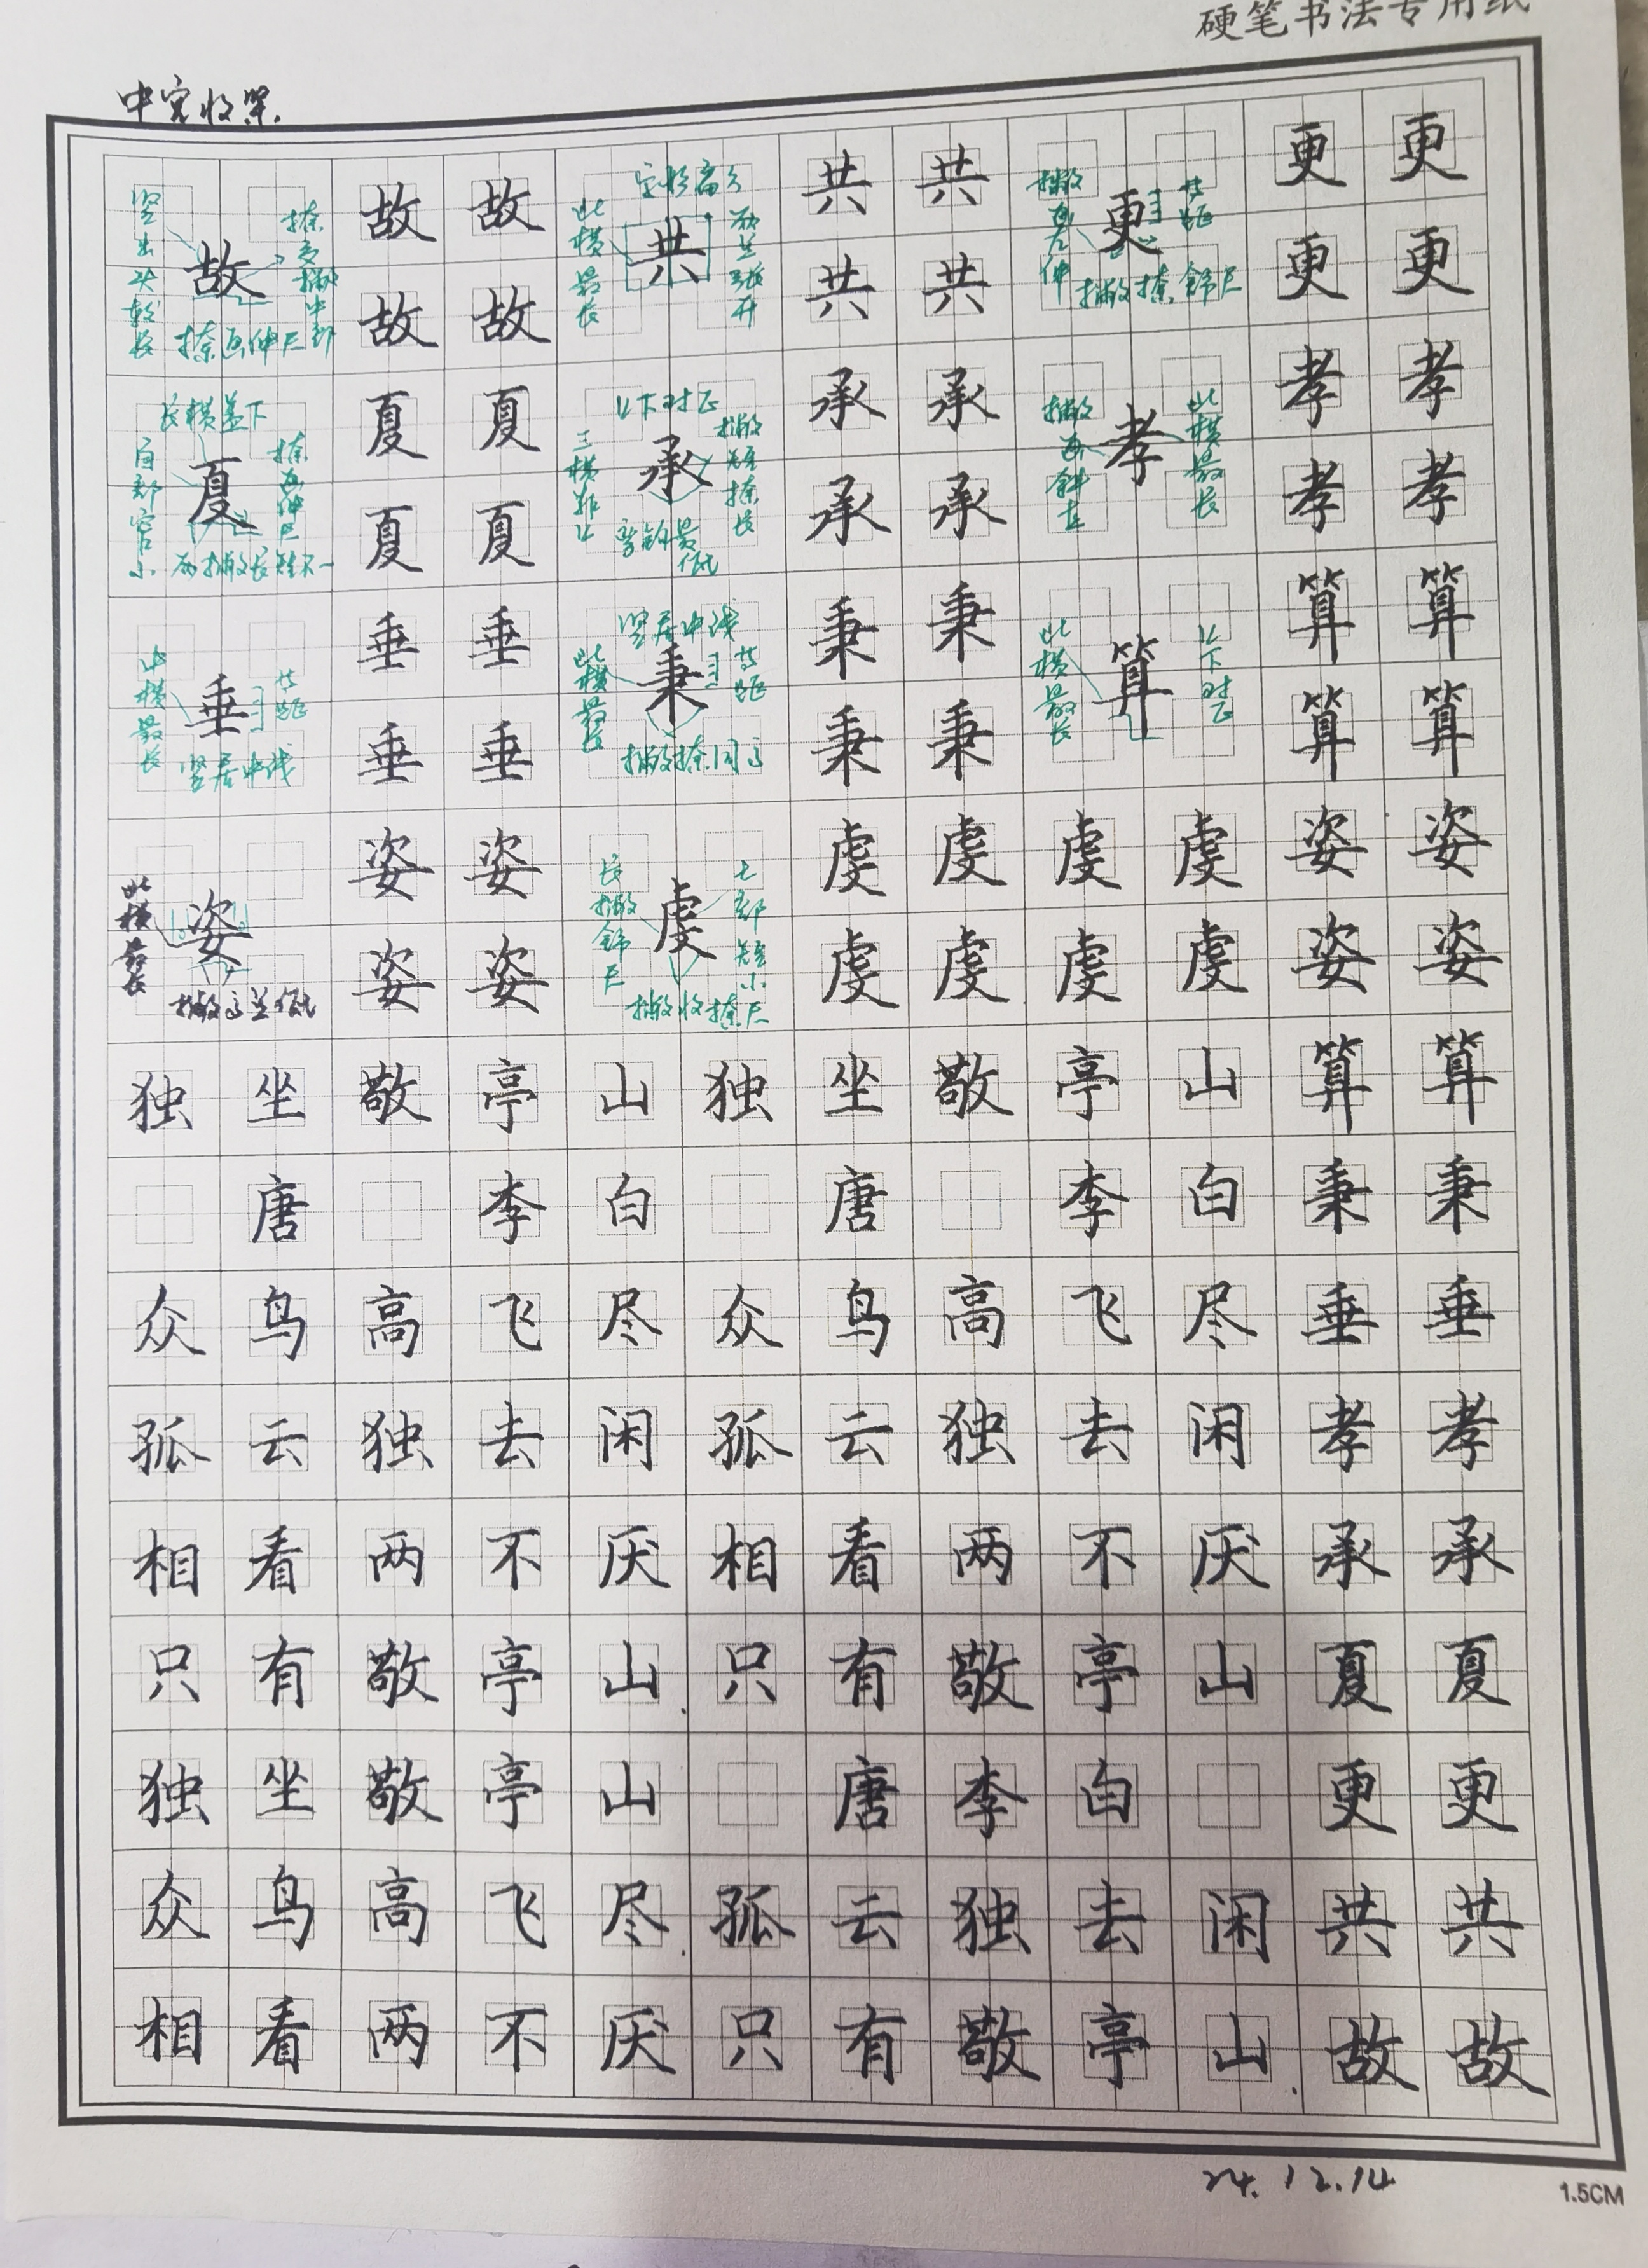 硬笔书法专用纸
中宫收紧
故 故 共 共 更 更
竖出头较长
故
捺交撇中部
捺画伸展
字形扁
此横最长
共
两竖张开
撇画左伸
更
等距
撇捺舒展
故 故 共 共 更 更
夏 夏 承 承 孝 孝
长横盖下
首部窄小
夏
捺画伸展
两撇长短不一
上下对正
三横靠上
承
撇短捺长
弯钩最低
撇画斜直
孝
此横最长
夏 夏 承 承 孝 孝
垂 垂 秉 秉 算 算
此横最长
垂
等距
竖居中线
竖居中线
此横最长
秉
等距
撇捺同高
此横最长
算
上下对正
垂 垂 秉 秉 算 算
姿 姿 虔 虔 虔 虔 姿 姿
此横最长
姿
撇高竖低
长撇舒展
虔
七部短小
撇收捺展
姿 姿 虔 虔 虔 虔 姿 姿
独坐敬亭山独坐敬亭山算算
唐 李白 唐 李白秉秉
众鸟高飞尽众鸟高飞尽垂垂
孤云独去闲孤云独去闲孝孝
相看两不厌相看两不厌承承
只有敬亭山.只有敬亭山夏夏
独坐敬亭山 唐李白 更更
众鸟高飞尽.孤云独去闲共共
相看两不厌只有敬亭山.故故
24.12.14
1.5CM